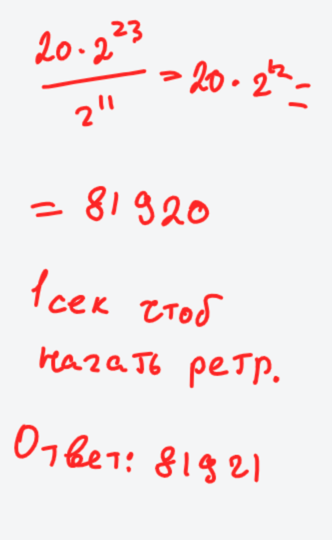 20·2²³/2¹¹ = 20·2¹² =
= 81920
1 сек чтоб
начать ретр.
Ответ: 81921